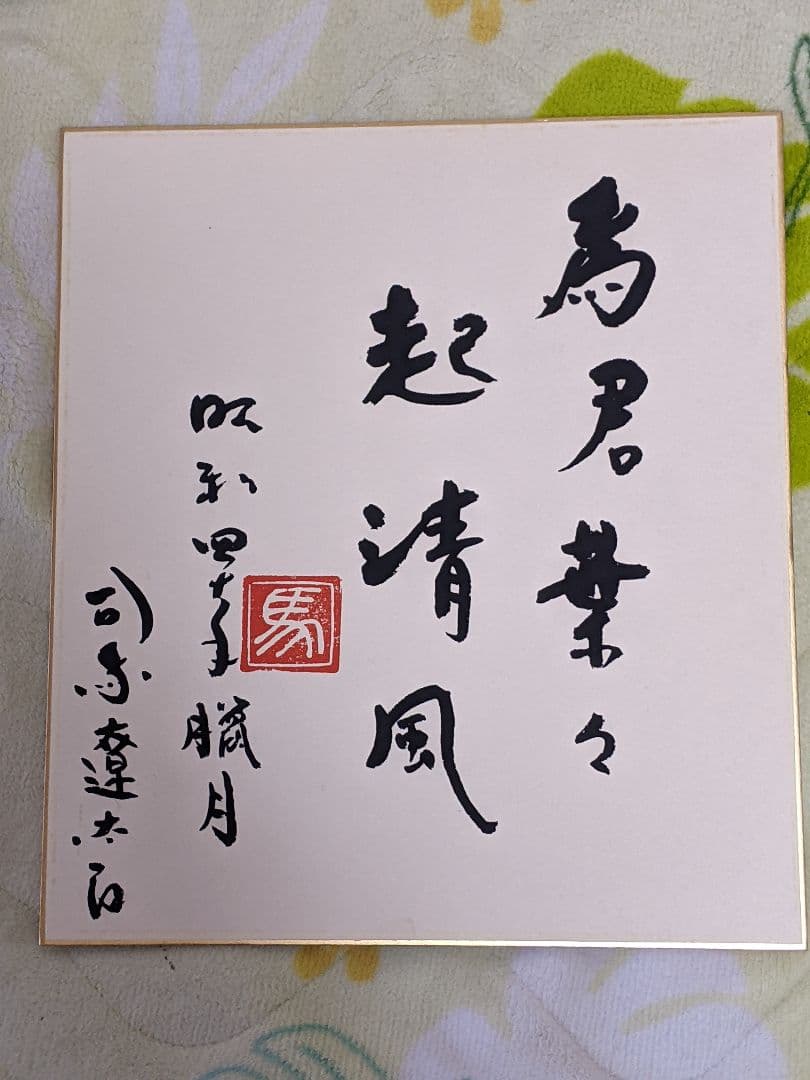 為君葉々
起清風
昭和四十年臘月
司馬遼太郎
馬